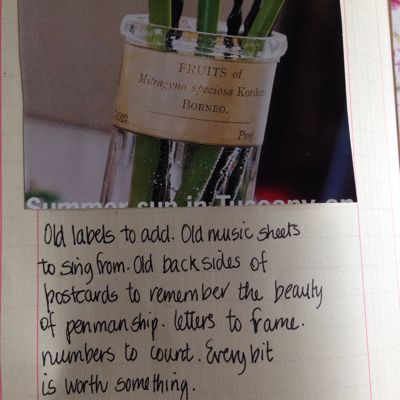 FRUITS of
Mitragyna speciosa Korth
BORNEO.
Prof.
Summer sun in Tuscany, an
Old labels to add. Old music sheets
to sing from. Old backsides of
postcards to remember the beauty
of penmanship. letters to frame.
numbers to count. Every bit
is worth something.